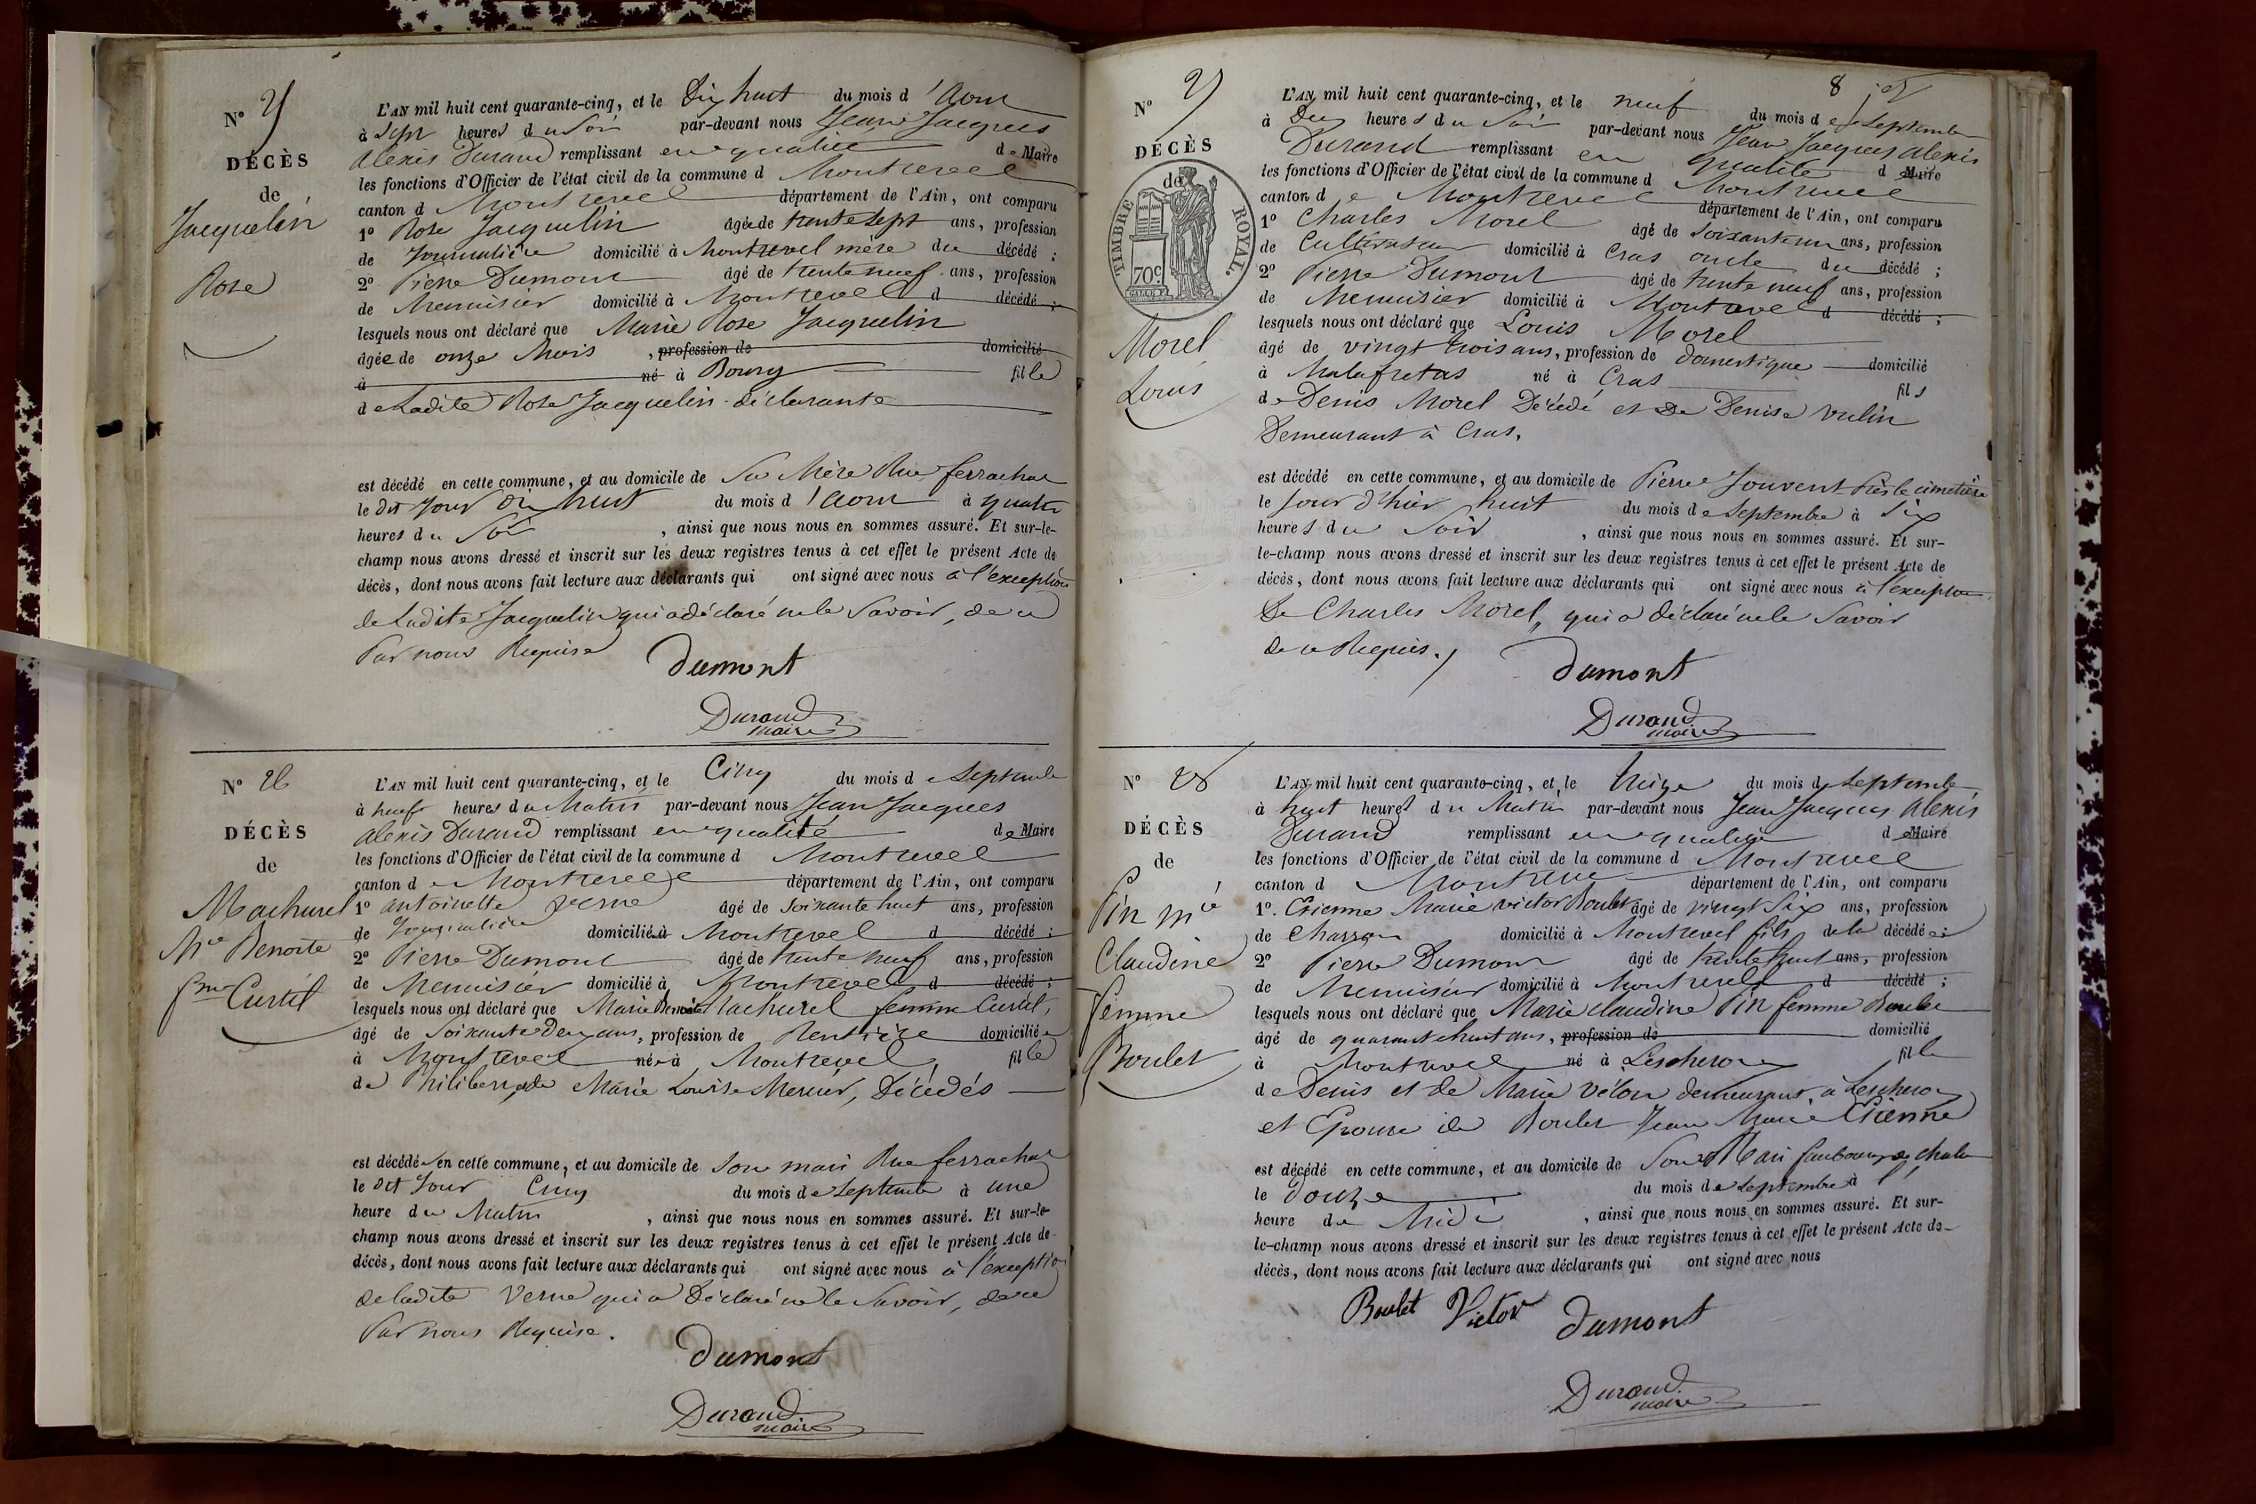 N° 25
DÉCÈS
de
Jacquelin
Rose
L'AN mil huit cent quarante-cinq, et le Dix huit du mois d'Aout
à Sept heures du Soir par-devant nous Jean Jacques
Alexis Durand remplissant en qualité de Maire
les fonctions d'Officier de l'état civil de la commune d Montrevel
canton d Montrevel département de l'Ain, ont comparu
1° Rose Jacquelin âgée de trente sept ans, profession
de Journalière domicilié à Montrevel mère du décédé ;
2° Pierre Dumont âgé de trente neuf ans, profession
de Menuisier domicilié à Montrevel d décédé ;
lesquels nous ont déclaré que Marie Rose Jacquelin
âgée de onze Mois, profession de domicilié
à né à Bourg fille
de Ladite Rose Jacquelin déclarante
est décédé en cette commune, et au domicile de Sa Mère Rue ferrachat
le dit Jour dix huit du mois d'aout à quatre
heures du Soir, ainsi que nous nous en sommes assuré. Et sur-le-
champ nous avons dressé et inscrit sur les deux registres tenus à cet effet le présent Acte de
décès, dont nous avons fait lecture aux déclarants qui ont signé avec nous à l'exception
de Ladite Jacquelin qui a déclaré ne le Savoir, de ce
Par nous Requise
Dumont
Durand
maire
N° 26
DÉCÈS
de
Machurel
Mie Benoite
fme Curtil
L'AN mil huit cent quarante-cinq, et le Cinq du mois de Septembre
à neuf heures du Matin par-devant nous Jean Jacques
Alexis Durand remplissant en qualité de Maire
les fonctions d'Officier de l'état civil de la commune d Montrevel
canton de Montrevel département de l'Ain, ont comparu
1° antoinette Verne âgé de Soixante huit ans, profession
de Journalière domicilié à Montrevel d décédé ;
2° Pierre Dumont âgé de trente neuf ans, profession
de Menuisier domicilié à Montrevel d décédé ;
lesquels nous ont déclaré que Marie Benoite Machurel femme Curtil,
âgé de Soixante deux ans, profession de Rentière domiciliée
à Montrevel née à Montrevel fille
de Philibert, et de Marie Louise Mercier, Décédés
est décédée en cette commune, et au domicile de Son mari Rue ferrachat
le dit Jour Cinq du mois de Septembre à une
heure du Matin, ainsi que nous nous en sommes assuré. Et sur-le-
champ nous avons dressé et inscrit sur les deux registres tenus à cet effet le présent Acte de
décès, dont nous avons fait lecture aux déclarants qui ont signé avec nous à l'exception
de ladite Verne qui a Déclaré ne le Savoir, de ce
Par nous Requise.
Dumont
Durand
maire
8
N° 27
DÉCÈS
de
TIMBRE ROYAL.
70c
Morel
Louis
L'AN mil huit cent quarante-cinq, et le neuf du mois de Septembre
à Dix heures du Soir par-devant nous Jean Jacques Alexis
Durand remplissant en qualité de Maire
les fonctions d'Officier de l'état civil de la commune d Montrevel
canton de Montrevel département de l'Ain, ont comparu
1° Charles Morel âgé de Soixante un ans, profession
de Cultivateur domicilié à Cras oncle du décédé ;
2° Pierre Dumont âgé de trente neuf ans, profession
de Menuisier domicilié à Montrevel d décédé ;
lesquels nous ont déclaré que Louis Morel
âgé de vingt trois ans, profession de domestique domicilié
à Malafretas né à Cras fils
de Denis Morel Décédé et de Denise Vulin
Demeurant à Cras.
est décédé en cette commune, et au domicile de Pierre Jouvent Près le cimetière
le Jour d'hier huit du mois de Septembre à Six
heures du Soir, ainsi que nous nous en sommes assuré. Et sur-
le-champ nous avons dressé et inscrit sur les deux registres tenus à cet effet le présent Acte de
décès, dont nous avons fait lecture aux déclarants qui ont signé avec nous à l'exception
De Charles Morel, qui a déclaré ne le Savoir
de ce Requis.
Dumont
Durand
maire
N° 28
DÉCÈS
de
Pin Mie
Claudine
Femme
Boulet
L'AN mil huit cent quarante-cinq, et le treize du mois de Septembre
à huit heures du Matin par-devant nous Jean Jacques Alexis
Durand remplissant en qualité de Maire
les fonctions d'Officier de l'état civil de la commune d Montrevel
canton d Montrevel département de l'Ain, ont comparu
1°. Etienne Marie Victor Boulet âgé de vingt Six ans, profession
de Charron domicilié à Montrevel fils de la décédée ;
2° Pierre Dumont âgé de trente huit ans, profession
de Menuisier domicilié à Montrevel d décédé ;
lesquels nous ont déclaré que Marie Claudine Pin femme Boulet
âgé de quarante huit ans, profession de domicilié
à Montrevel né à Lescheroux fille
de Denis et de Marie Vélon demeurant à Lescheroux
et Epouse de Boulet Jean Marie Etienne
est décédé en cette commune, et au domicile de Son Mari faubourg de chalon
le Douze du mois de Septembre à l'
heure de Midi, ainsi que nous nous en sommes assuré. Et sur-
le-champ nous avons dressé et inscrit sur les deux registres tenus à cet effet le présent Acte de
décès, dont nous avons fait lecture aux déclarants qui ont signé avec nous
Boulet Victor Dumont
Durand
maire